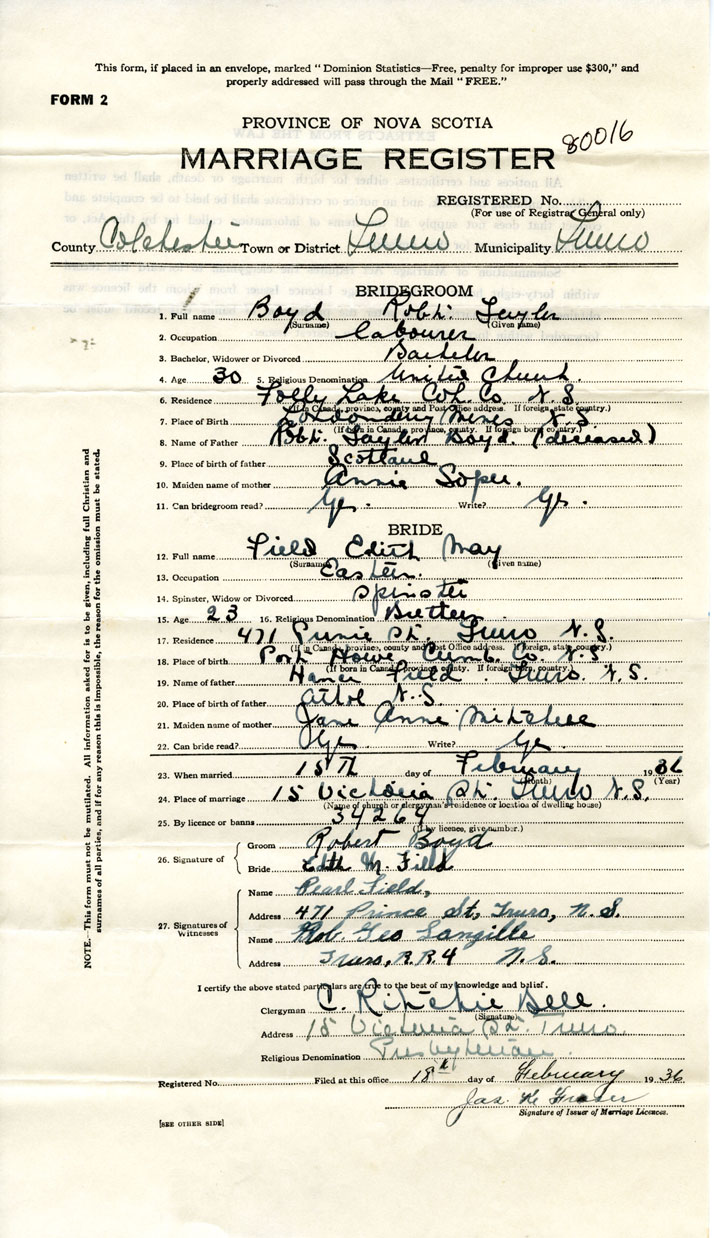 This form, if placed in an envelope, marked "Dominion Statistics—Free, penalty for improper use $300," and
properly addressed will pass through the Mail "FREE."
FORM 2
PROVINCE OF NOVA SCOTIA
MARRIAGE REGISTER 80016
REGISTERED No.
(For use of Registrar General only)
County Colchester Town or District Truro Municipality Truro
BRIDEGROOM
1. Full name Boyd Robt. Taylor
(Surname) (Given name)
2. Occupation labourer
3. Bachelor, Widower or Divorced Bachelor
4. Age 30 5. Religious Denomination United Church.
6. Residence Folly Lake Col. Co. N.S.
(If in Canada, province, county and Post Office address. If foreign, state country.)
7. Place of Birth Londonderry Mines N.S.
(If born in Canada, province, county. If foreign born country.)
8. Name of Father Robt. Taylor Boyd. (deceased)
9. Place of birth of father Scotland
10. Maiden name of mother Annie Soper.
11. Can bridegroom read? Yes. Write? Yes.
BRIDE
12. Full name Field Edith May
(Surname) (Given name)
13. Occupation
14. Spinster, Widow or Divorced Spinster
15. Age 23 16. Religious Denomination
17. Residence 471 Prince St. Truro N.S.
(If in Canada, province, county and Post Office address. If foreign, state country.)
18. Place of birth Port Howe Cumb. Co. N.S.
(If born in Canada, province, county. If foreign born, country.)
19. Name of father Field. Truro N.S.
20. Place of birth of father Athol N.S.
21. Maiden name of mother Jane Anne Mitchell
22. Can bride read? Yes Write? Yes.
23. When married 15th day of February 1936
(Month) (Year)
24. Place of marriage 15 Victoria St. Truro N.S.
(Name of church or clergyman's residence or location of dwelling house)
25. By licence or banns 34264
(If by licence, give number.)
26. Signature of
Groom Robert Boyd
Bride Edith M. Field
27. Signatures of Witnesses
Name Pearl Field,
Address 471 Prince St, Truro, N.S.
Name Rob. Geo Langille
Address Truro, R.R.4 N.S.
I certify the above stated particulars are true to the best of my knowledge and belief.
Clergyman C. Ritchie Bell.
(Signature)
Address 15 Victoria St. Truro
Religious Denomination Presbyterian.
Registered No. Filed at this office 18th day of February 1936
Jas. K. Fraser
Signature of Issuer of Marriage Licences.
[SEE OTHER SIDE]
NOTE.—This form must not be mutilated. All information asked for is to be given, including full Christian and
surnames of all parties, and if for any reason this is impossible, the reason for the omission must be stated.